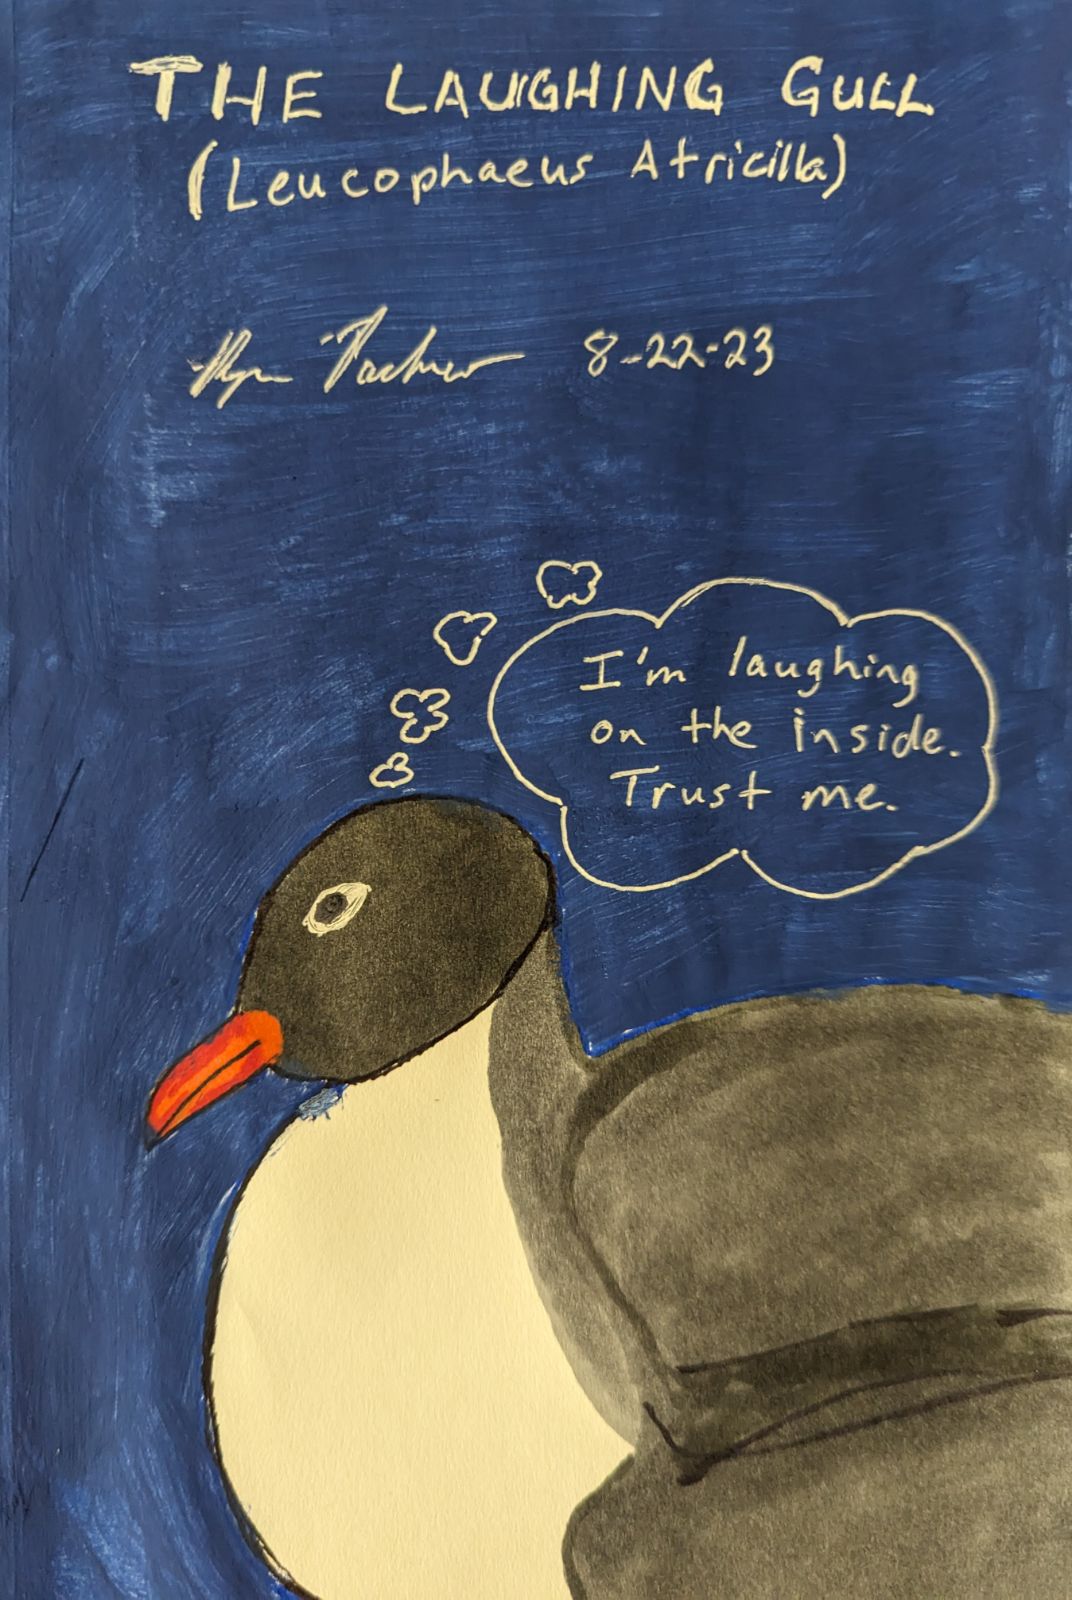 THE LAUGHING GULL
(Leucophaeus Atricilla)
8-22-23
I'm laughing
on the inside.
Trust me.